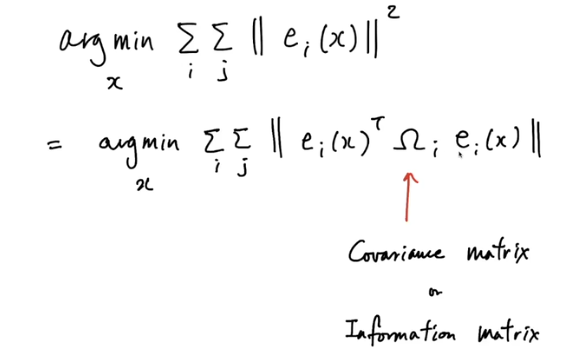 arg min Σ Σ || e_i(x) ||^2
x i j
= arg min Σ Σ || e_i(x)^T Ω_i e_i(x) ||
x i j
Covariance matrix
or
Information matrix